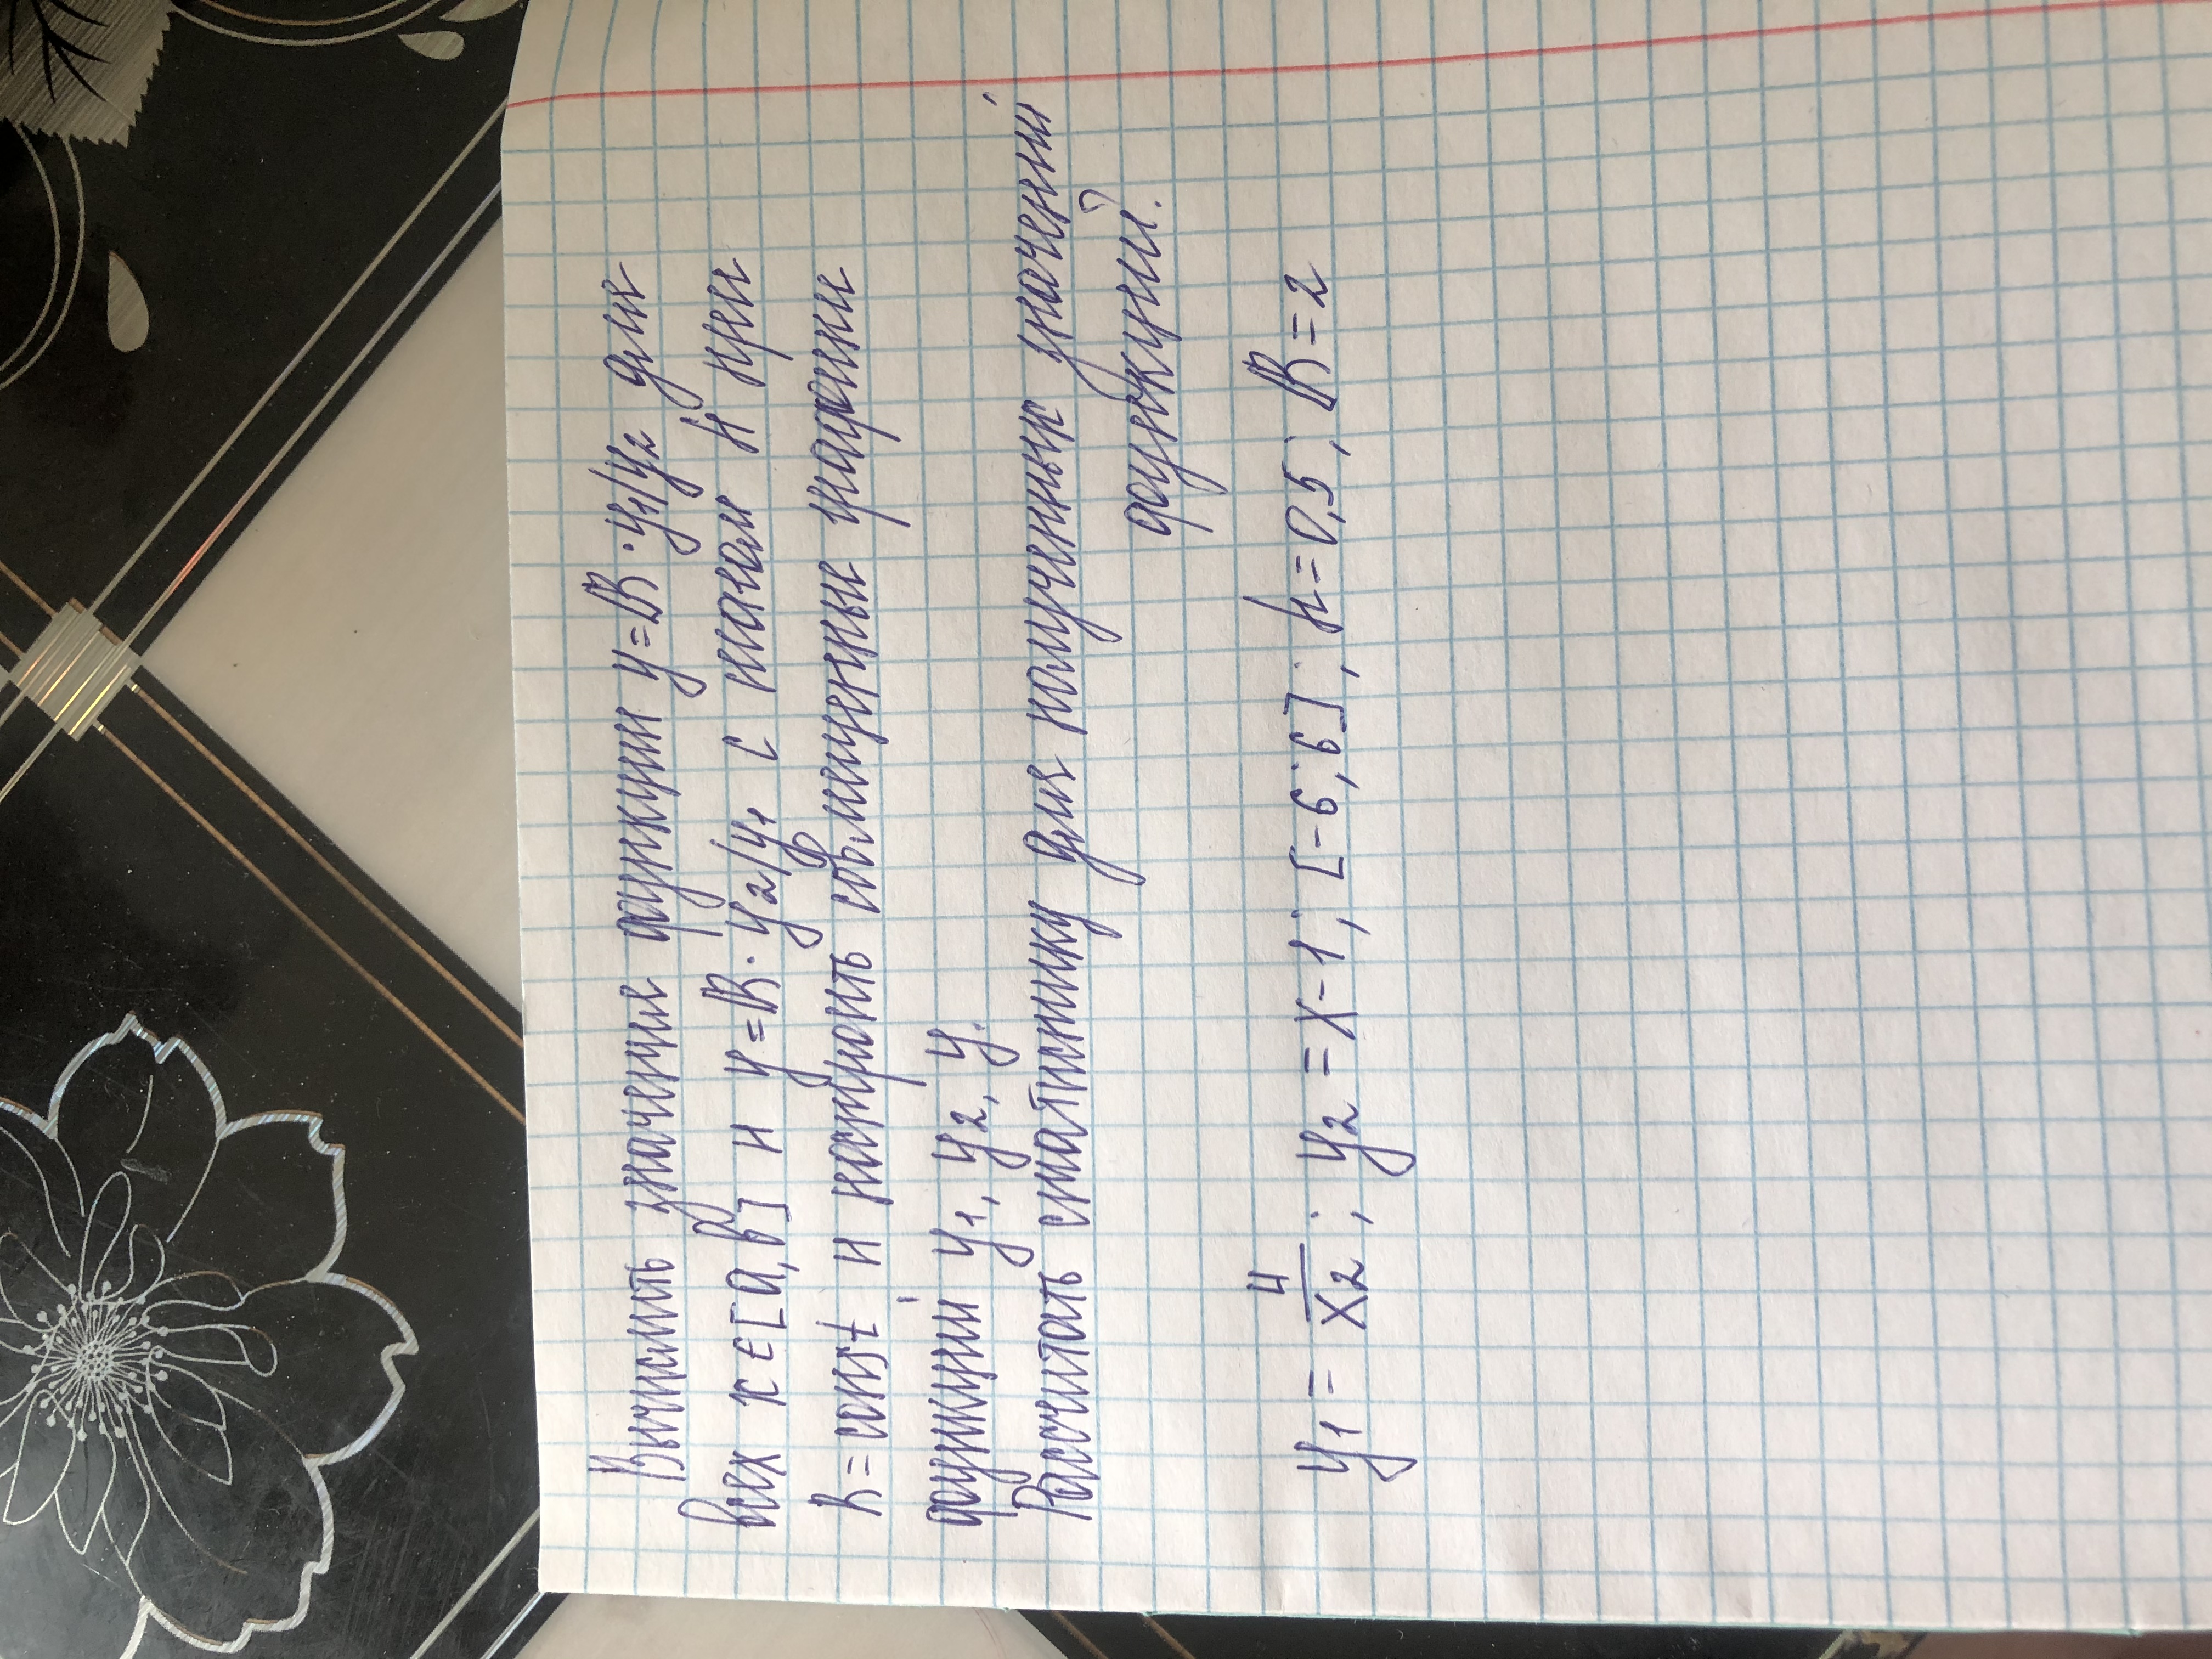 Вычислить значение функции y=B·y₁/y₂ для
всех x∈[a,b] и y=B·y₂/y₁ с шагом H при
B=const и построить совмещенные графики
функций y₁, y₂, y.
Рассчитать статистику для полученных значений
функций.
y₁ = 4/x₂; y₂ = x-1; [-6;6]; h=0,5; B=2